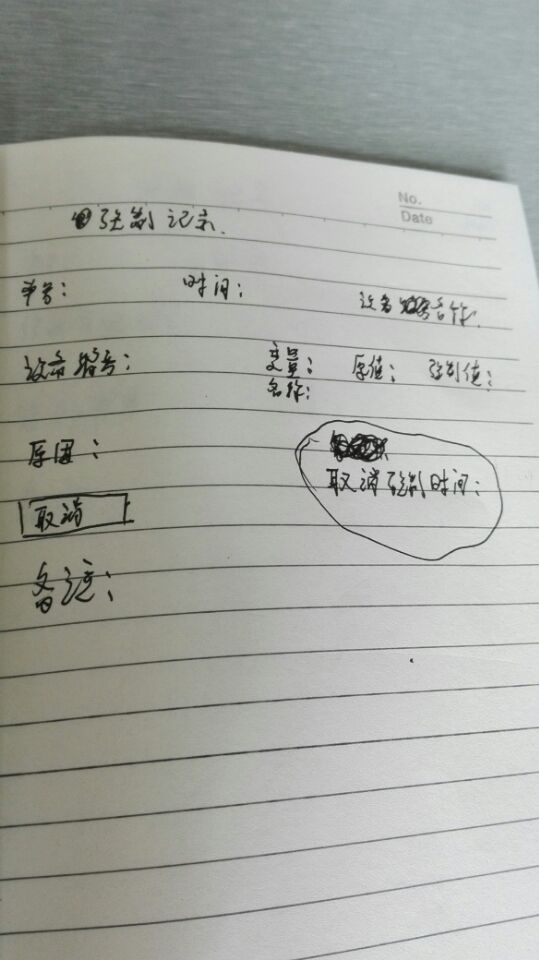 No.
Date
强制记录.
单号： 时间： 设备名称.
设备编号： 变量名称： 原值： 强制值：
原因：
取消强制时间：
取消
备注：